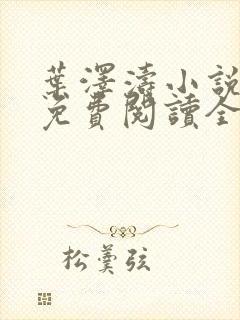 葉澤濤小說
免費閱讀全
松羹弦